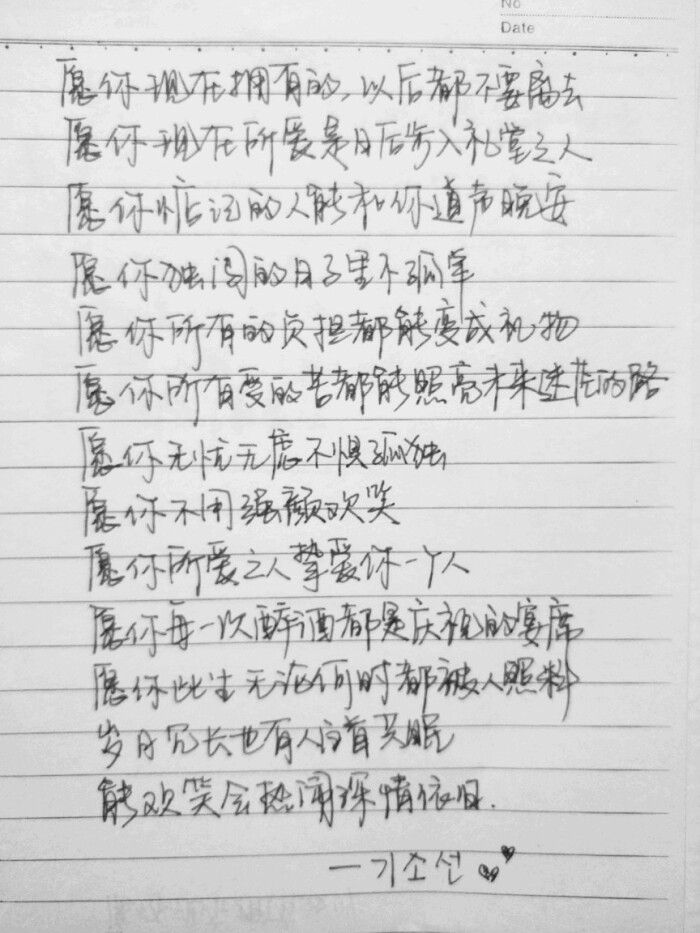 No
Date
愿你现在拥有的，以后都不要离去
愿你现在所爱是日后步入礼堂之人
愿你惦记的人能和你道声晚安
愿你独闯的日子里不孤单
愿你所有的负担都能变成礼物
愿你所有受的苦都能照亮未来迷茫的路
愿你无忧无虑不惧孤独
愿你不用强颜欢笑
愿你所爱之人挚爱你一个人
愿你每一次醉酒都是庆祝的宴席
愿你此生无论何时都被人照料
岁月冗长也有人白首共眠
能欢笑会热闹深情依旧.
—기소선